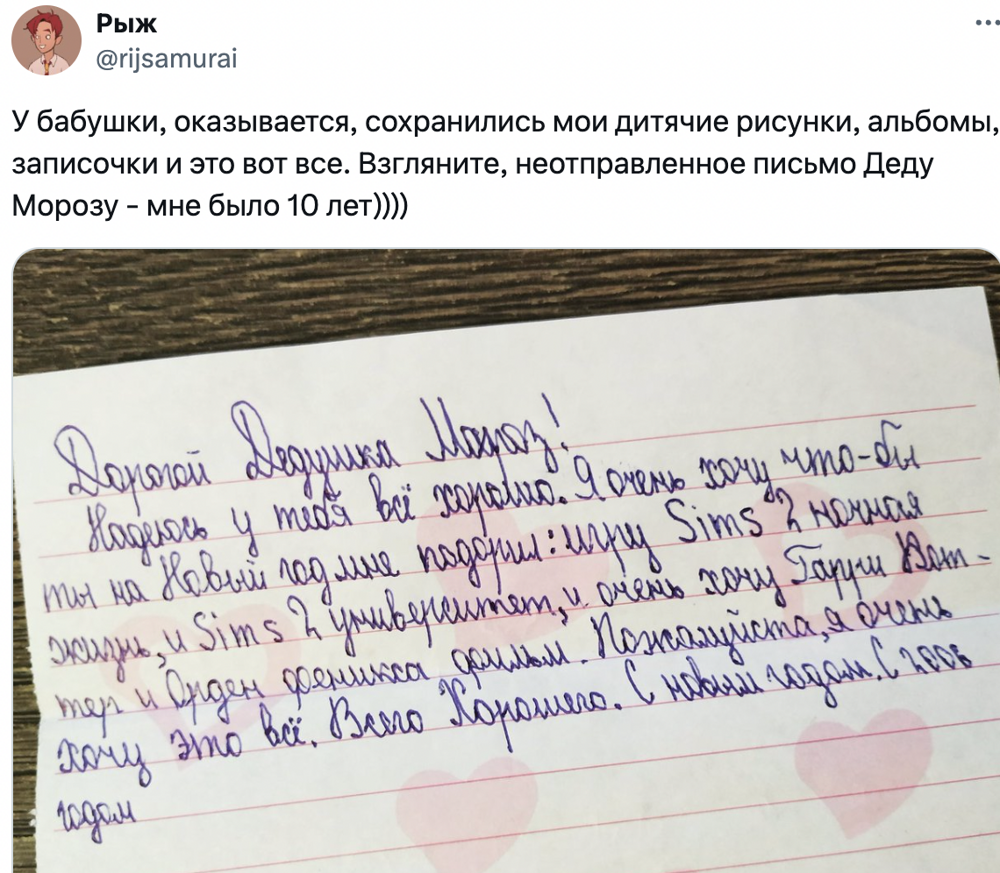 Рыж
@rijsamurai
У бабушки, оказывается, сохранились мои дитячие рисунки, альбомы,
записочки и это вот все. Взгляните, неотправленное письмо Деду
Морозу - мне было 10 лет))))
Дорогой Дедушка Мороз!
Надеюсь у тебя всё хорошо. Я очень хочу что-бы
ты на Новый год мне подарил: игру Sims 2 ночная
жизнь, и Sims 2 университет, и очень хочу Гарри Пот-
тер и Орден феникса фильм. Пожалуйста, я очень
хочу это всё. Всего Хорошего. С новым годом. С 2006
годом